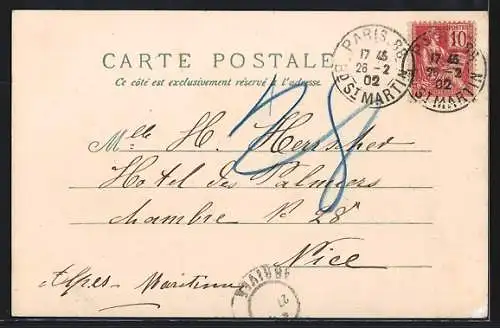 CARTE POSTALE
Ce côté est exclusivement réservé à l'adresse.
PARIS 88
17 45
26 -2
02
B D ST MARTIN
10
POSTES
17 45
-2
02
ST MARTIN
28
Mlle H. Herrscher
Hotel des Palmiers
chambre No 28
Nice
Alpes-Maritimes
ARRIVÉE
27